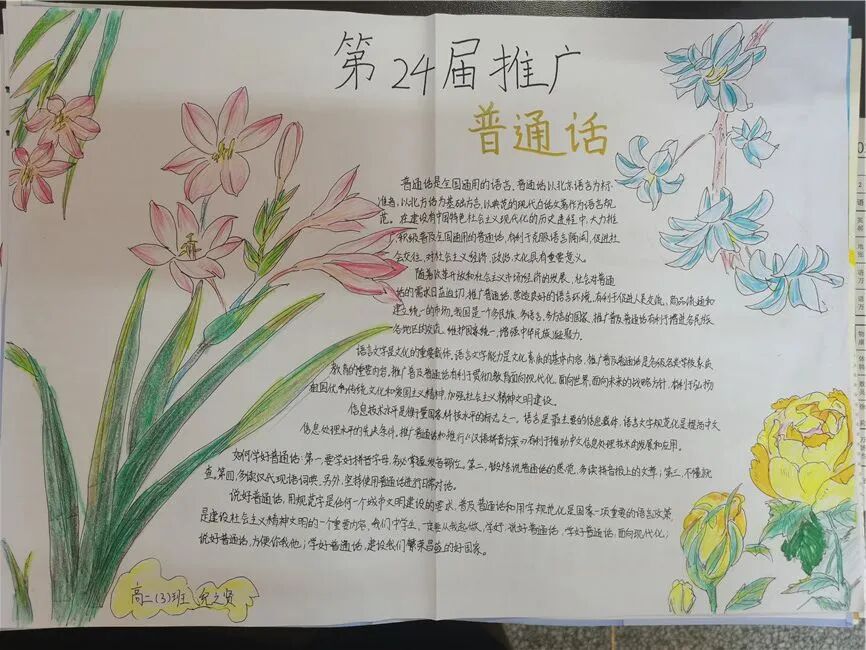 第24届推广
普通话
普通话是全国通用的语言。普通话以北京语言为标
准音,以北方话为基础方言,以典范的现代白话文著作为语言规
范。在建设有中国特色社会主义现代化的历史进程中,大力推
广、积极普及全国通用的普通话,有利于克服语言隔阂,促进社
会交往,对社会主义经济、政治、文化具有重要意义。
随着改革开放和社会主义市场经济的发展,社会对普通
话的需求日益迫切。推广普通话,营造良好的语言环境,有利于促进人员交流,商品流通和
建立统一的市场。我国是个多民族、多语言、多方言的国家,推广普及普通话有利于增进各民族
各地区的交流,维护国家统一,增强中华民族凝聚力。
语言文字是文化的重要载体,语言文字能力是文化素质的基本内容,推广普及普通话是各级各类学校素质
教育的重要内容。推广普及普通话有利于贯彻教育面向现代化,面向世界,面向未来的战略方针,有利于弘扬
祖国优秀传统文化和爱国主义精神,加强社会主义精神文明建设。
信息技术水平是衡量国家科技水平的标志之一。语言是最主要的信息载体,语言文字规范化是提高中文
信息处理水平的先决条件。推广普通话和推行《汉语拼音方案》有利于推动中文信息处理技术的发展和应用。
如何学好普通话:第一,要学好拼音字母,务必掌握发音部位。第二,
多读拼音报上的文章;第三,不懂就
查。第四,多读汉代现语词典。另外,坚持使用普通话进行日常对话。
说好普通话,用规范字是任何一个城市文明建设的要求,普及普通话和用字规范化是国家一项重要的语言政策,
是建设社会主义精神文明的一个重要内容,我们中学生,一定要从我做起,学好,说好普通话,学好普通话,面向现代化;
说好普通话,方便你我他;学好普通话,建设我们繁荣昌盛的好国家。
高二(3)班 纪之贤